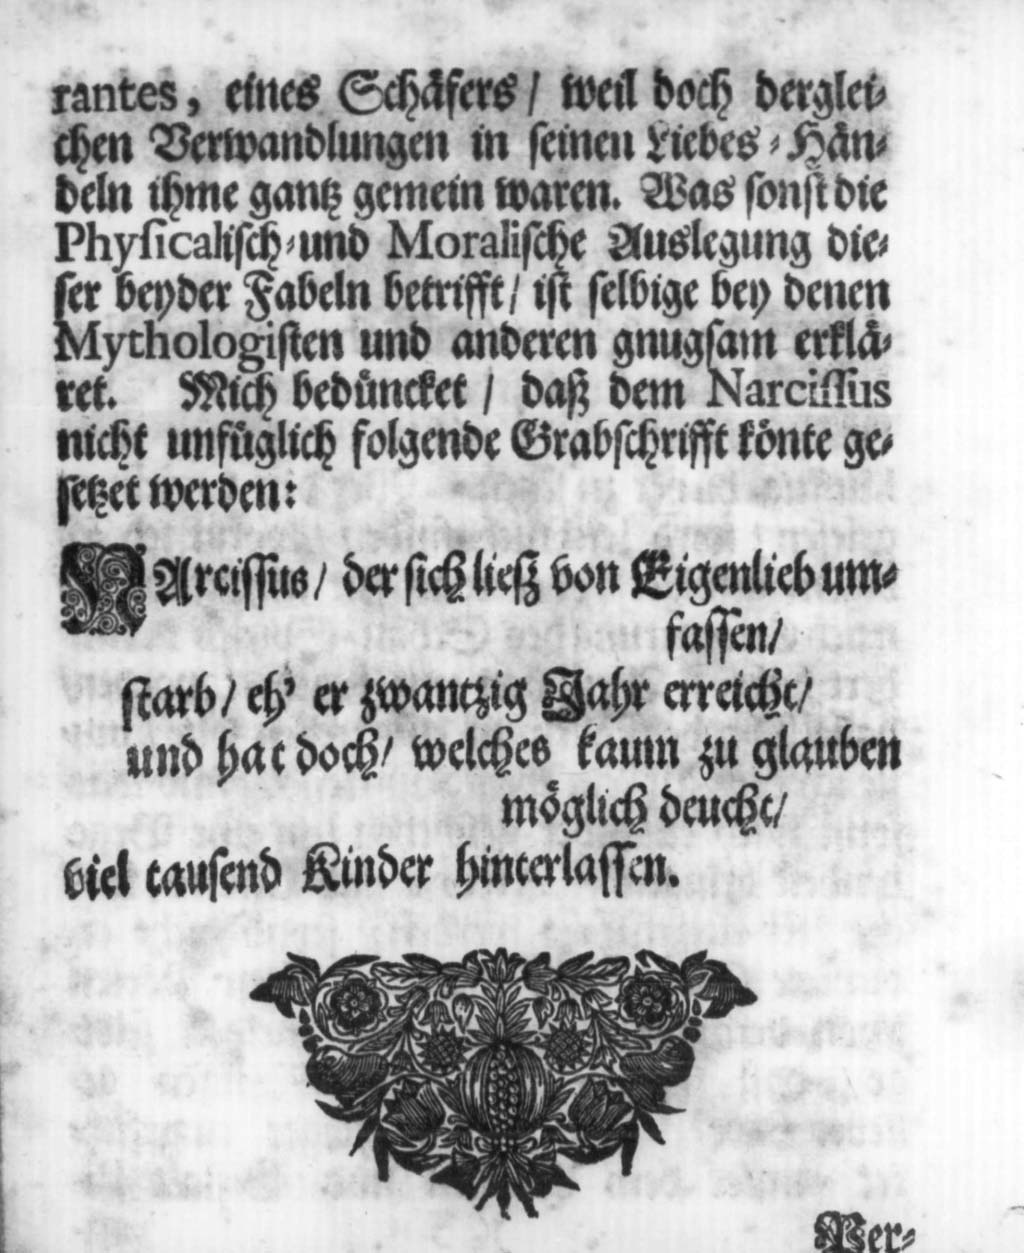 rantes, eines Schäfers / weil doch derglei-
chen Verwandlungen in seinen Liebes-Hän-
deln ihme gantz gemein waren. Was sonst die
Physicalisch-und Moralische Auslegung die-
ser beyder Fabeln betrifft / ist selbige bey denen
Mythologisten und anderen gnugsam erklä-
ret. Mich bedüncket / daß dem Narcissus
nicht unfüglich folgende Grabschrifft könte ge-
setzet werden:
NArcissus / der sich ließ von Eigenlieb um-
fassen /
starb / eh' er zwantzig Jahr erreicht /
und hat doch / welches kaum zu glauben
möglich deucht /
viel tausend Kinder hinterlassen.
Wer-